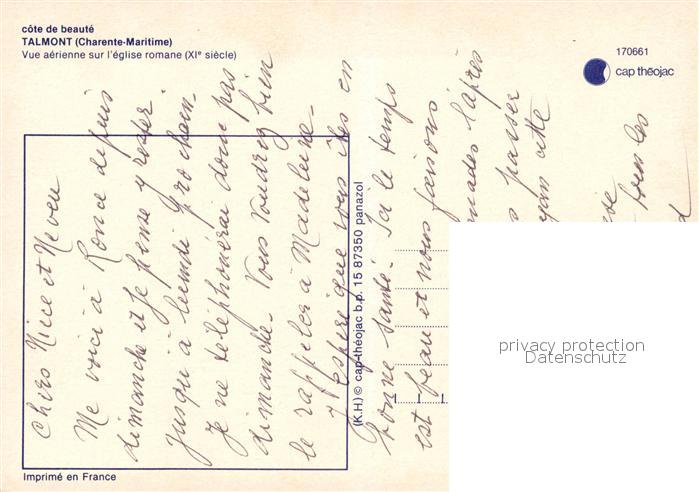 côte de beauté
TALMONT (Charente-Maritime)
Vue aérienne sur l'église romane (XIe siècle)
170661
cap théojac
Chers Nièce et Neveu
Me voici à Ronce depuis
dimanche et je pense y rester
jusqu'à lundi prochain-
Je ne téléphonerai donc pas
dimanche. Vous voudrez bien
le rappeler à Madeleine-
J'espère que vous êtes en
bonne santé. Ici le temps
est beau et nous faisons
l'après
passer
cette
tous les
(K.H.) © cap-théojac b.p. 15 87350 panazol
Imprimé en France
privacy protection
Datenschutz